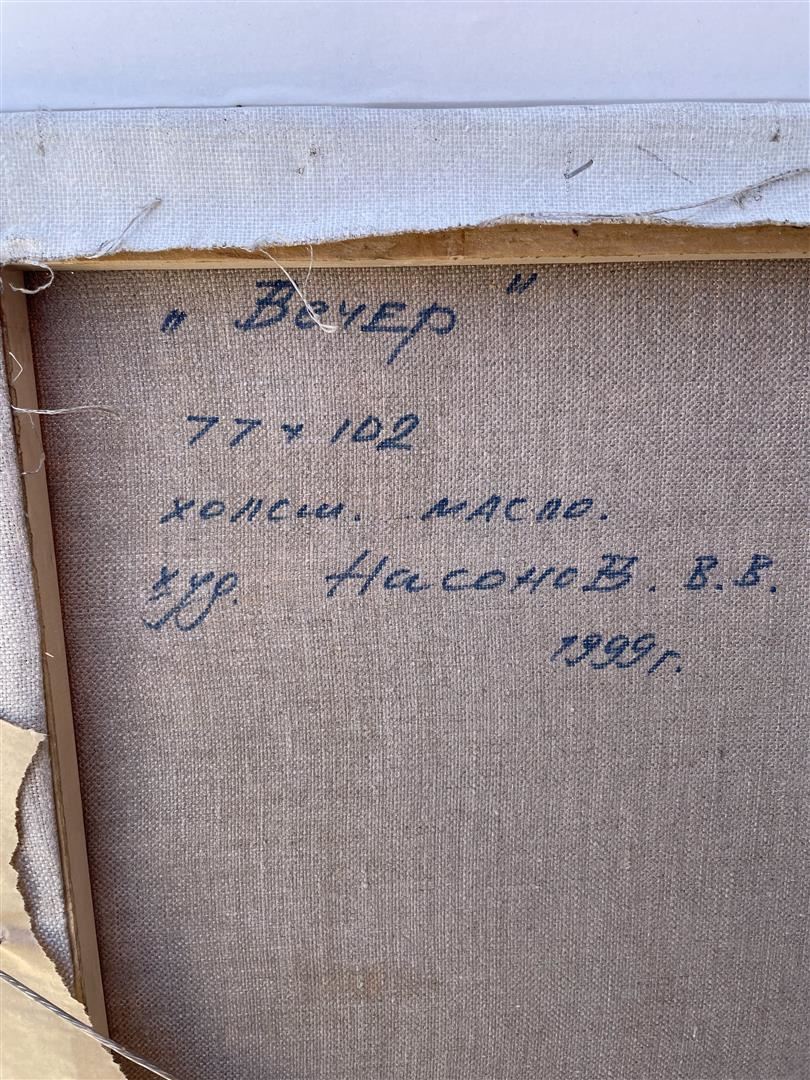 „ Вечер "
77 x 102
холст. масло.
худ. Насонов. В.В.
1999г.